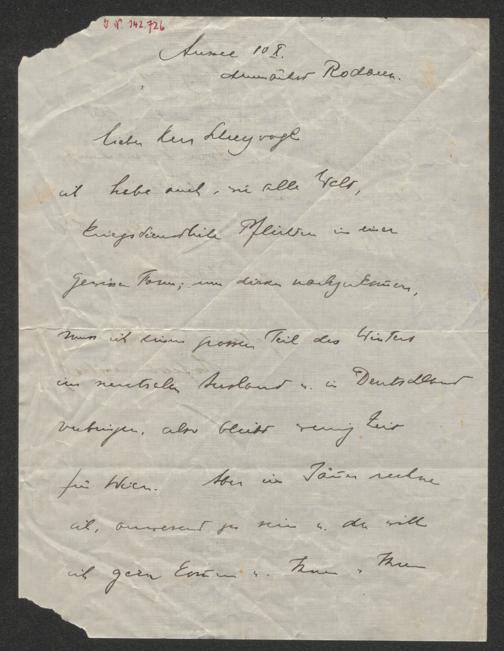 J. N. 142.726
Aussee 10 X.
demnächst Rodaun.
lieber Herr Schreyvogl
ich habe auch, wie alle Welt,
kriegsdienstliche Pflichten in einer
gewissen Form; um diesen nachzukommen,
muss ich einen grossen Teil des Winters
im neutralen Ausland u. in Deutschland
verbringen, also bleibt wenig Zeit
für Wien. Aber im Jänner rechne
ich, anwesend zu sein u. da will
ich gern kommen u. Ihnen u. Ihren